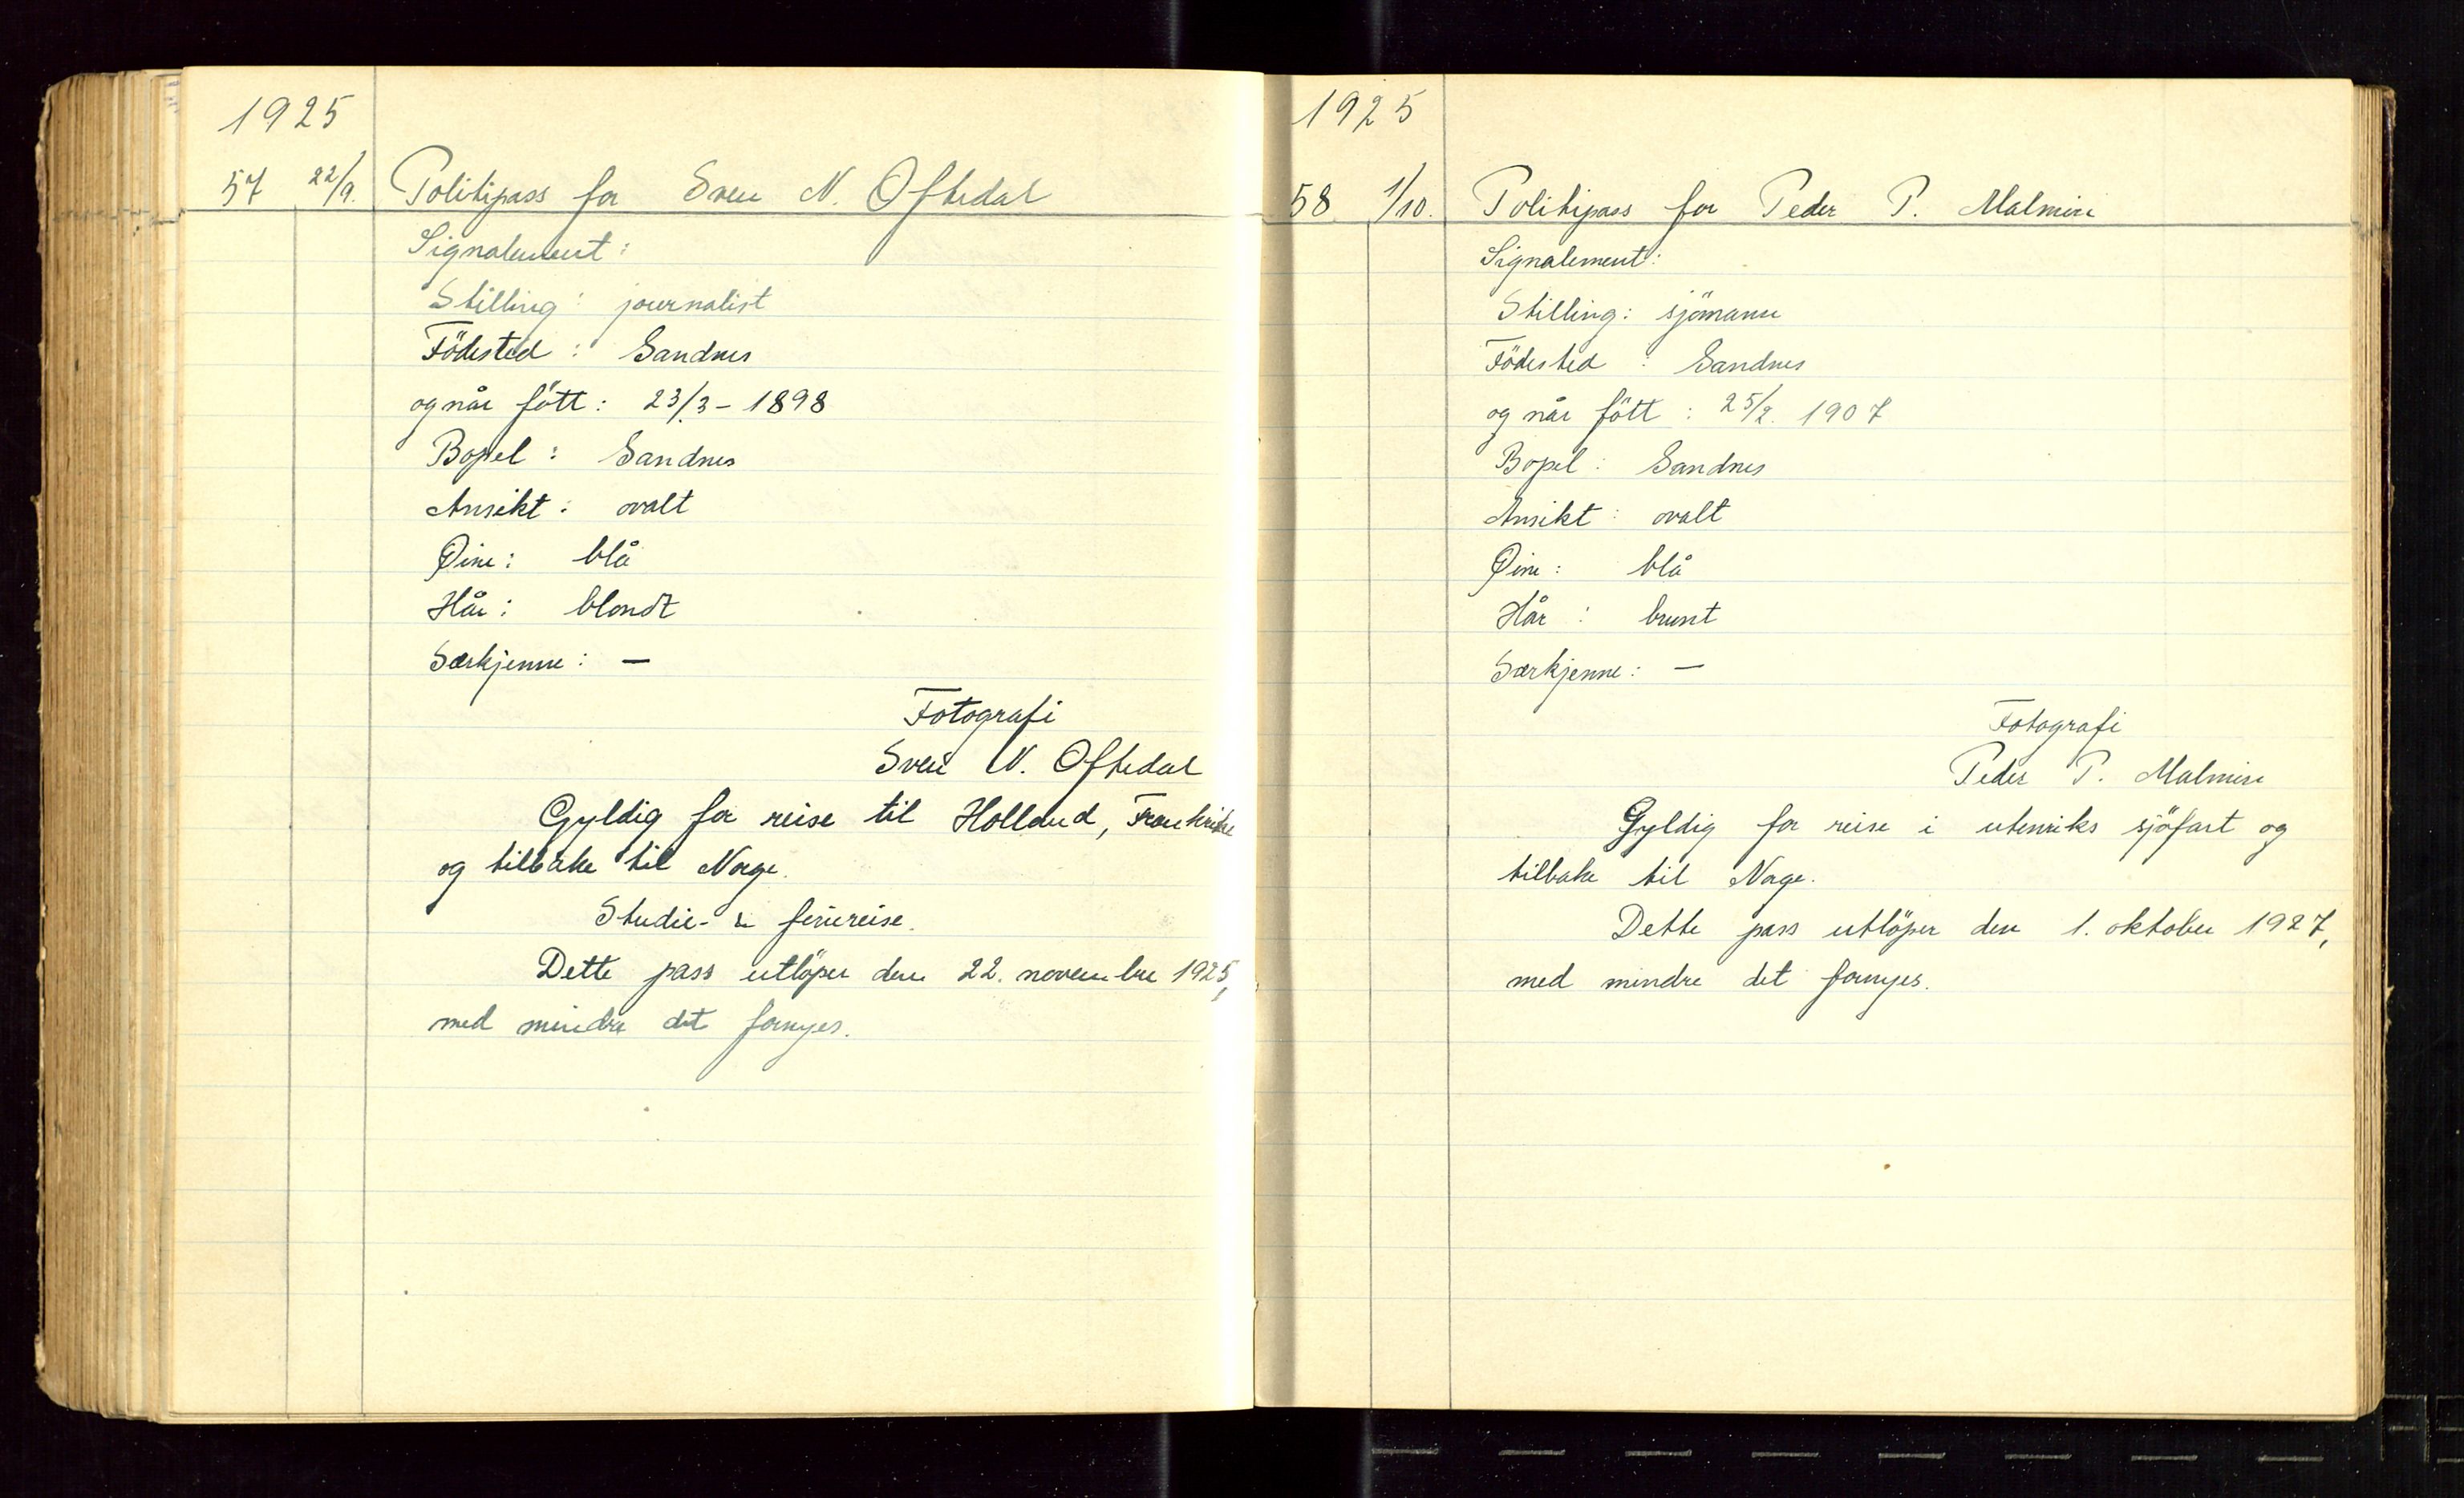 1925
57 22/9. Politipass for Sven N. Oftedal
Signalement:
Stilling: journalist
Födested: Sandnes
og når fött: 23/3 - 1898
Bopel: Sandnes
Ansikt: ovalt
Øine: blå
Hår: blondt
Særkjenne: —
Fotografi
Sven N. Oftedal
Gyldig for reise til Holland, Frankrike
og tilbake til Norge.
Studie- & feriereise.
Dette pass utlöper den 22. november 1925,
med mindre det fornyes.
1925
58 1/10. Politipass for Peder P. Malmin
Signalement:
Stilling: sjömann
Födested: Sandnes
og når fött: 25/2. 1907
Bopel: Sandnes
Ansikt: ovalt
Øine: blå
Hår: brunt
Særkjenne: —
Fotografi
Peder P. Malmin
Gyldig for reise i utenriks sjöfart og
tilbake til Norge.
Dette pass utlöper den 1. oktober 1927,
med mindre det fornyes.